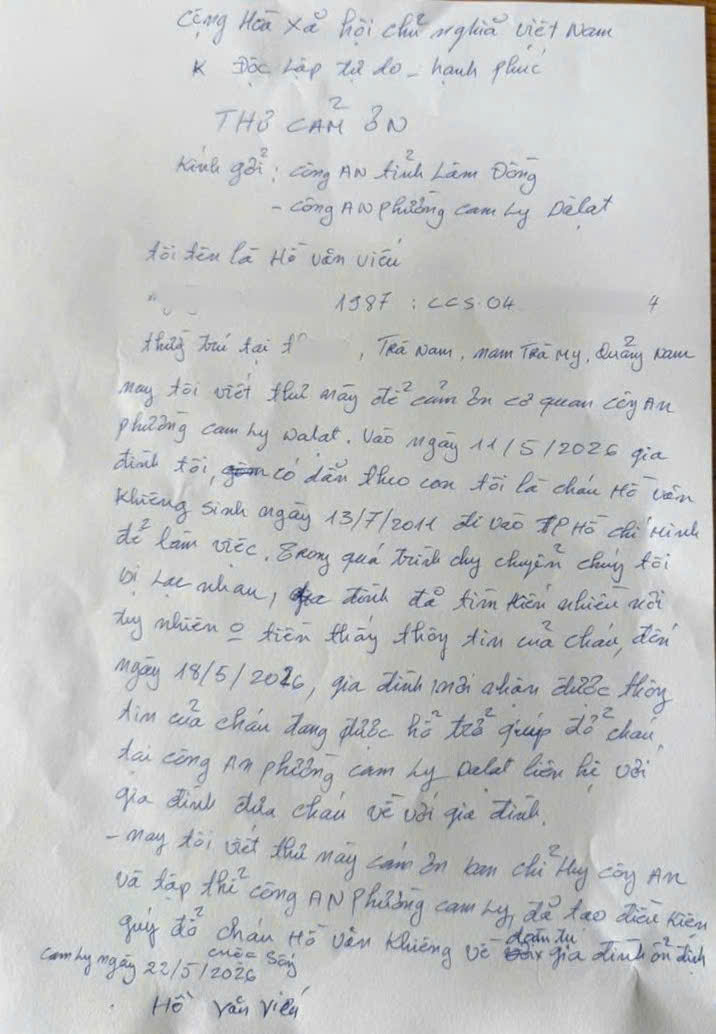 Cộng Hòa Xã hội chủ nghĩa việt Nam
Độc Lập tự do - hạnh phúc
THƯ CẢM ƠN
Kính gởi: công AN tỉnh Lâm Đồng
- công AN phường cam Ly Đàlạt
tôi tên là Hồ văn viếu
1987 : CCS.04 4
thường trú tại t , Trà Nam, nam Trà My, Quảng Nam
nay tôi viết thư này để cảm ơn cơ quan công An
phường cam Ly Dalat. Vào ngày 11/5/2026 gia
đình tôi, có dẫn theo con tôi là cháu Hồ văn
Khiêng sinh ngày 13/7/2011 đi vào TP Hồ chí Minh
để làm việc. Trong quá trình duy chuyển chúng tôi
bị Lạc nhau, gia đình đã tìm kiếm nhiều nơi
tuy nhiên thấy thông tin của cháu, đến
ngày 18/5/2026, gia đình mới nhận được thông
tin của cháu đang được hỗ trợ giúp đỡ cháu,
tại công An phường cam Ly Dalat liên hệ với
gia đình đưa cháu về với gia đình.
- nay tôi viết thư này cảm ơn ban chỉ Huy công An
và tập thể công AN Phường cam Ly, đã tạo điều kiện
giúp đỡ cháu Hồ văn Khiêng về gia đình ổn định
cuộc sống
Cam Ly ngày 22/5/2026
Hồ Văn Viếu